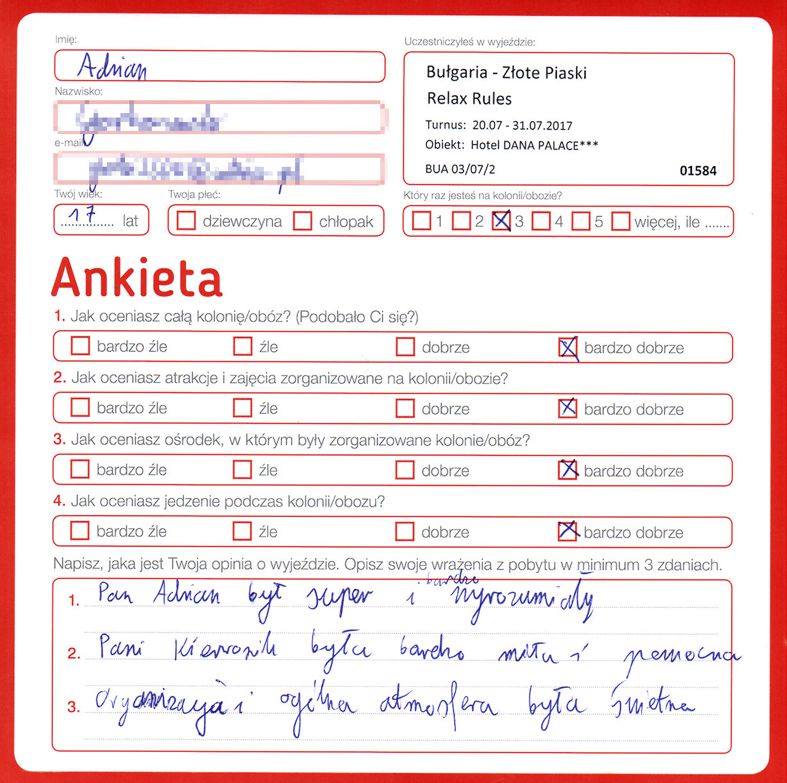 Imię:
Adrian
Nazwisko:
e-mail
Twój wiek:
17 lat
Twoja płeć:
dziewczyna chłopak
Uczestniczyłeś w wyjeździe:
Bułgaria - Złote Piaski
Relax Rules
Turnus: 20.07 - 31.07.2017
Obiekt: Hotel DANA PALACE***
BUA 03/07/2 01584
Który raz jesteś na kolonii/obozie?
1 2 3 4 5 więcej, ile .......
Ankieta
1. Jak oceniasz całą kolonię/obóz? (Podobało Ci się?)
bardzo źle źle dobrze bardzo dobrze
2. Jak oceniasz atrakcje i zajęcia zorganizowane na kolonii/obozie?
bardzo źle źle dobrze bardzo dobrze
3. Jak oceniasz ośrodek, w którym były zorganizowane kolonie/obóz?
bardzo źle źle dobrze bardzo dobrze
4. Jak oceniasz jedzenie podczas kolonii/obozu?
bardzo źle źle dobrze bardzo dobrze
Napisz, jaka jest Twoja opinia o wyjeździe. Opisz swoje wrażenia z pobytu w minimum 3 zdaniach.
1. Pan Adrian był super i bardzo wyrozumiały
2. Pani Kierownik była bardzo miła i pomocna
3. Organizacja i ogólna atmosfera była świetna